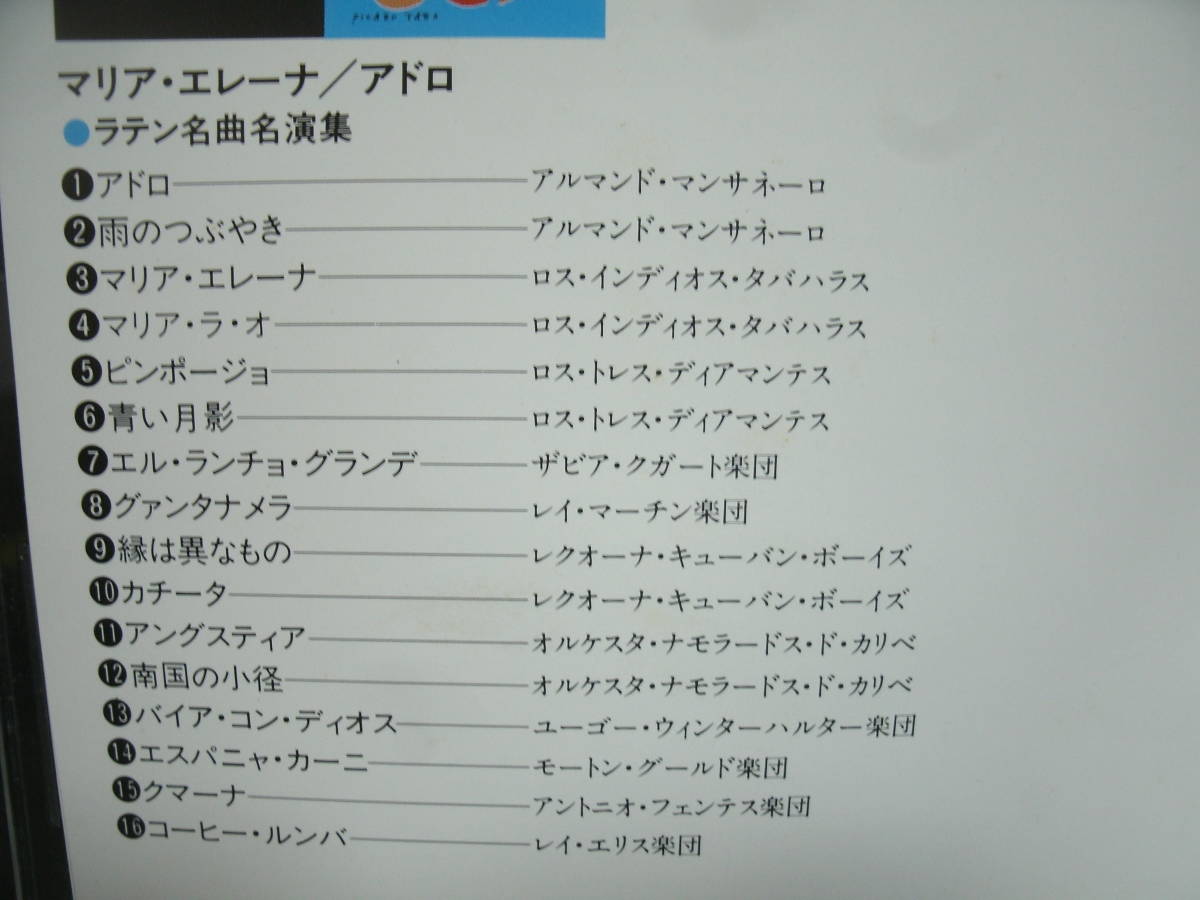 マリア・エレーナ／アドロ
●ラテン名曲名演集
❶アドロ――アルマンド・マンサネーロ
❷雨のつぶやき――アルマンド・マンサネーロ
❸マリア・エレーナ――ロス・インディオス・タバハラス
❹マリア・ラ・オ――ロス・インディオス・タバハラス
❺ピンポージョ――ロス・トレス・ディアマンテス
❻青い月影――ロス・トレス・ディアマンテス
❼エル・ランチョ・グランデ――ザビア・クガート楽団
❽グァンタナメラ――レイ・マーチン楽団
❾縁は異なもの――レクオーナ・キューバン・ボーイズ
❿カチータ――レクオーナ・キューバン・ボーイズ
⓫アングスティア――オルケスタ・ナモラードス・ド・カリベ
⓬南国の小径――オルケスタ・ナモラードス・ド・カリベ
⓭バイア・コン・ディオス――ユーゴー・ウィンターハルター楽団
⓮エスパニャ・カーニ――モートン・グールド楽団
⓯クマーナ――アントニオ・フェンテス楽団
⓰コーヒー・ルンバ――レイ・エリス楽団